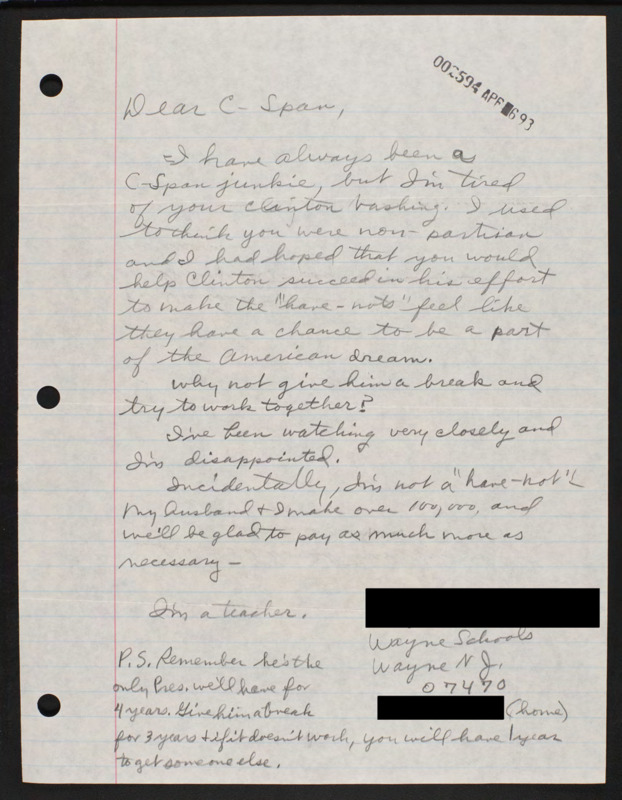 002594 APR 693
Dear C-Span,
I have always been a
C-Span junkie, but I'm tired
of your clinton bashing. I used
to think you were non-partisan
and I had hoped that you would
help Clinton succeed in his effort
to make the "have-nots" feel like
they have a chance to be a part
of the American dream.
Why not give him a break and
try to work together?
I've been watching very closely and
I'm disappointed.
Incidentally, I'm not a "have-not"!
My husband + I make over 100,000, and
we'll be glad to pay as much more as
necessary –
I'm a teacher.
Wayne Schools
Wayne N.J.
07470
(home)
P.S. Remember he's the
only Pres. we'll have for
4 years. Give him a break
for 3 years + if it doesn't work, you will have 1 year
to get someone else.